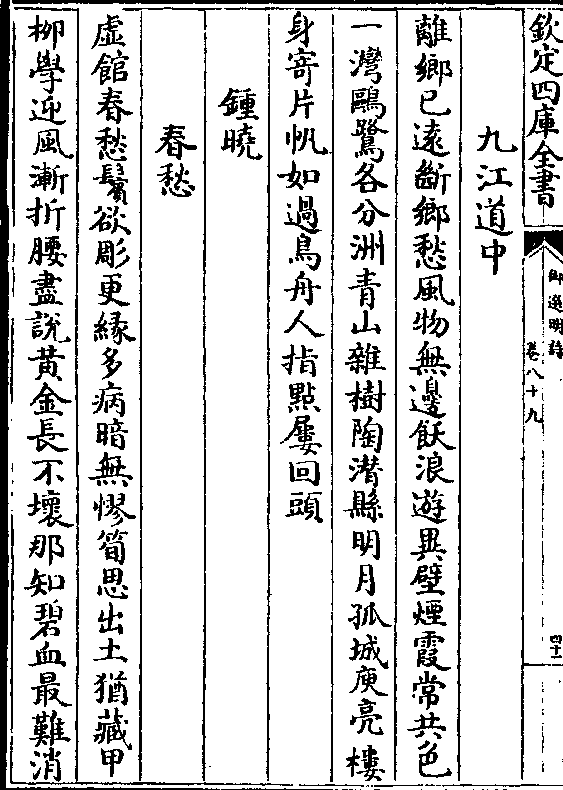 欽定四庫全書
御選明詩
卷八十九
四十一
九江道中
離鄉已遠斷鄉愁風物無邊飫浪遊異壁煙霞常共色
一灣鷗鷺各分洲青山雜樹陶潛縣明月孤城庾亮樓
身寄片帆如過鳥舟人指點屢回頭
鍾曉
春愁
虛館春愁鬢欲彫更緣多病暗無憀筍思出土猶藏甲
栁學迎風漸折腰盡說黃金長不壞那知碧血最難消